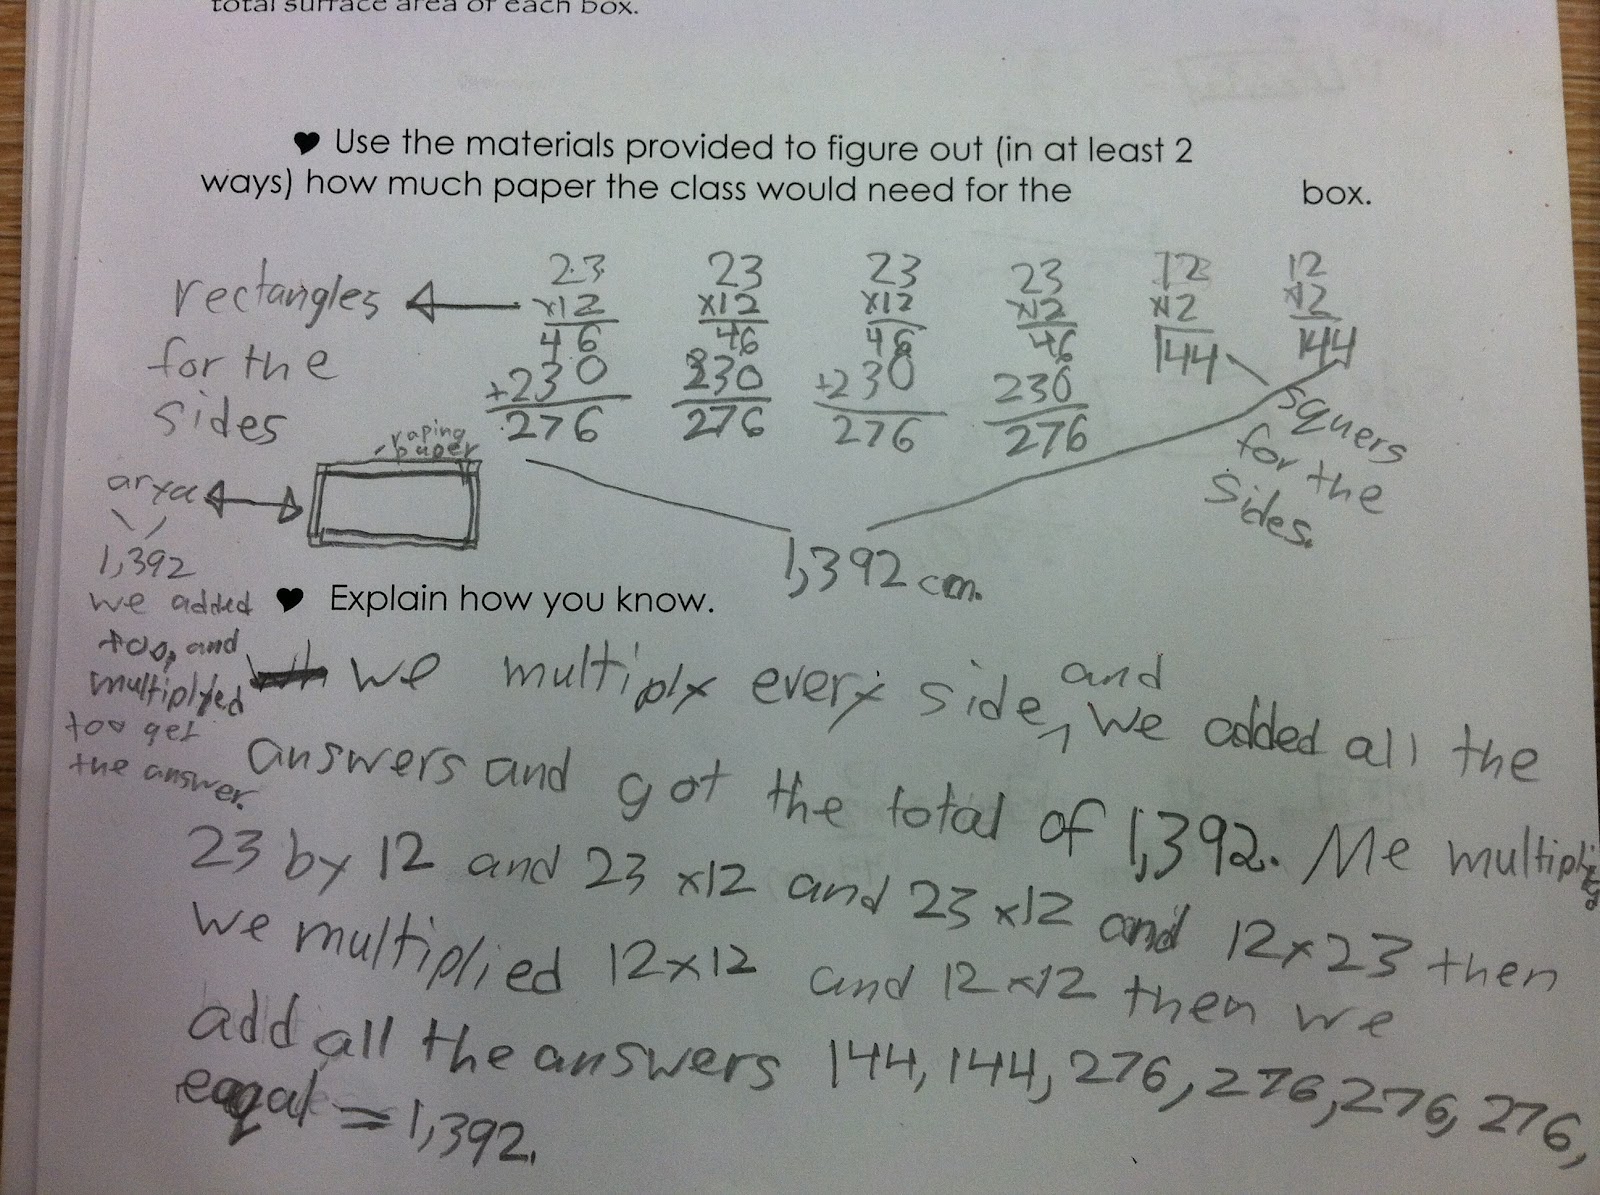 total surface area of each box.
♥ Use the materials provided to figure out (in at least 2
ways) how much paper the class would need for the box.
rectangles
for the
sides
23 23 23 23 12 12
x12 x12 x12 x12 x12 x12
46 46 46 46 144 144
+230 230 +230 230
276 276 276 276
squers
for the
sides.
raping
paper
arya
1,392
we added
too, and
multiplyed
too get
the answer.
1,392 cm.
♥ Explain how you know.
we multiply every side, and we added all the
answers and got the total of 1,392. Me
23 by 12 and 23 x12 and 23 x12 and 12x23 then
we multiplied 12x12 and 12x12 then we
add all the answers 144, 144, 276, 276, 276, 276,
eaqal = 1,392.